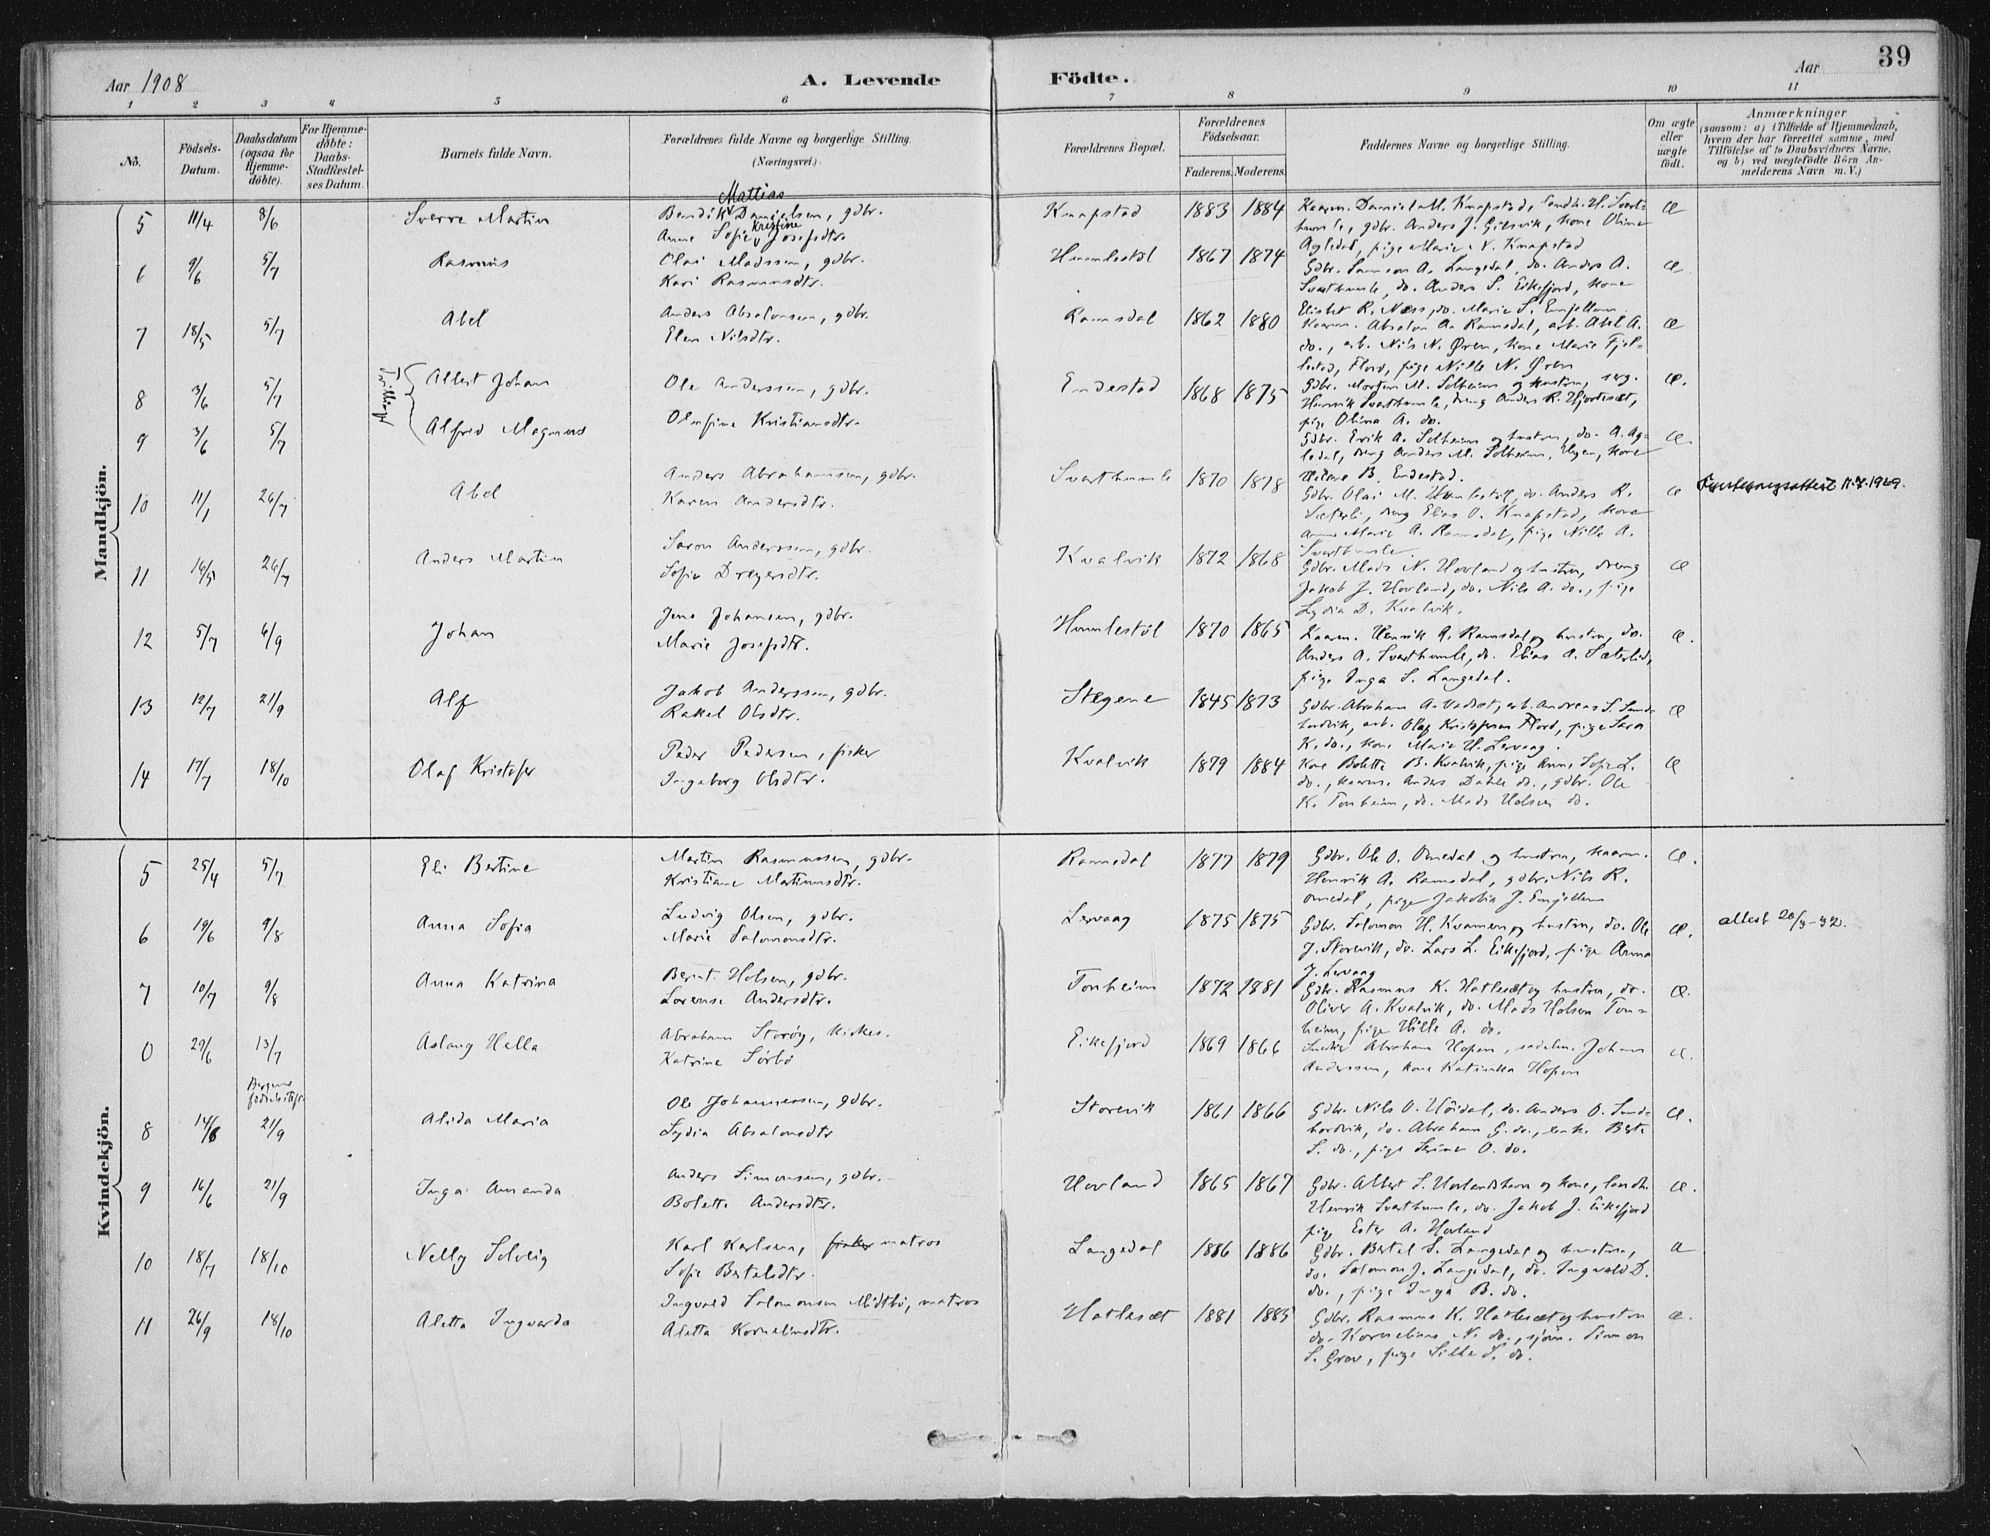 39
Aar 1908
A. Levende Födte.
Aar
1 2 3 4 5 6 7 8 9 10 11
No.
Födsels-Datum.
Daabsdatum (ogsaa for Hjemme-döbte).
For Hjemme-döbte: Daabs-Stadfæstel-ses Datum.
Barnets fulde Navn.
Forældrenes fulde Navne og borgerlige Stilling. (Næringsvei.)
Forældrenes Bopæl.
Forældrenes Födselsaar.
Faderens. Moderens.
Faddernes Navne og borgerlige Stilling.
Om ægte eller uægte födt.
Anmærkninger (saasom: a) i Tilfælde af Hjemmedaab, hvem der har forrettet samme, med Tilföielse af to Daabsvidners Navne, og b) ved uægtefödte Börn An-melderens Navn m. V.)
Mandkjön.
5 11/4 8/6 Sverre Martin
Mattias
Bendik Danielsen, gdbr.
Kristine
Anne Sofie Josefsdtr.
Knapstad 1883 1884
gdbr. Anders J. Gilsvik, kone Oline
Agledal, pige Marie N. Knapstad
6 9/6 5/7 Rasmus
Olai Madssen, gdbr.
Kari Rasmusdtr.
Humlestøl 1867 1874
Gdbr. Samson A. Langedal, do. Anders A.
Svarthumle, do. Anders S. Eikefjord, kone
Elisbet R. Næss, do. Marie S.
7 18/5 5/7 Abel
Anders Absalonsen, gdbr.
Elen Nilsdtr.
Ramsdal 1862 1880
Absalon A. Ramsdal, arb. Abel A.
do., arb. Nils N. Øren, kone Marie
Florø, pige Nille N. Øren
Tvillinger
8 3/6 5/7 Albert Johan
9 3/6 5/7 Alfred Magnus
Ole Anderssen, gdbr.
Olufine Kristiansdtr.
Endestad 1868 1875
Gdbr. Morten M. Solheim og hustru,
Henrik Svarthumle, dreng Anders R. Hjortesæt,
pige Olina A. do.
Gdbr. Erik A. Solheim og hustru, do. A. Ag-
ledal, dreng Anders M. Solheim, kone
B. Endestad.
10 11/1 26/7 Abel
Anders Abrahamsen, gdbr.
Karen Andersdtr.
Svarthumle 1870 1878
Gdbr. Olai M. Humlestøl, do. Anders R.
Sæterli, dreng Elias O. Knapstad, kone
Anne Marie A. Ramsdal, pige Nille A.
Svarthumle
11 16/5 26/7 Anders Martin
Saron Anderssen, gdbr.
Sofie Dreyersdtr.
Kvalvik 1872 1868
Gdbr. Mads N. Hovland og hustru, dreng
Jakob J. Hovland, do. Nils A. do., pige
Lydia D. Kvalvik.
12 5/7 6/9 Johan
Jens Johansen, gdbr.
Marie Josefsdtr.
Humlestøl 1870 1865
Kaarm. Henrik A. Ramsdal og hustru, do.
Anders A. Svarthumle, do. Elias A. Sæterlid,
pige Inga S. Langedal.
13 12/7 21/9 Alf
Jakob Anderssen, gdbr.
Rakel Olsdtr.
Stegene 1845 1873
Gdbr. Abraham A. arb. Andreas S. Sand-
arb. Olaf Kristofersen Florø, pige Sara
K. do., kone Marie H. Lervaag.
14 17/7 18/10 Olaf Kristofer
Peder Pedersen, fisker
Ingeborg Olsdtr.
Kvalvik 1879 1884
Kone Bolette B. Kvalvik, pige Anne Sofie L.
do., kaarm. Anders Dahle do., gdbr. Ole
K. Tonheim, do. Mads Holsen do.
Kvindekjön.
5 25/4 5/7 Eli Bertine
Martin Rasmussen, gdbr.
Kristiane Martinusdtr.
Ramsdal 1877 1879
Gdbr. Ole O. Omedal og hustru, kaarm.
Henrik A. Ramsdal, gdbr. Nils R.
Omedal, pige Jakobia J.
6 19/6 9/8 Anna Sofia
Ludvig Olsen, gdbr.
Marie Salomonsdtr.
Lervaag 1875 1875
Gdbr. Salomon H. Kvamen og hustru, do. Ole
J. Storevik, do. Lars L. Eikefjord, pige Anna
J. Lervaag
attest 20/3-32.
7 10/7 9/8 Anna Katrina
Bernt Holsen, gdbr.
Lovense Andersdtr.
Tonheim 1872 1881
Gdbr. Rasmus K. Hatlesæt og hustru, do.
Oliver A. Kvalvik, do. Mads Holsen Ton-
heim, pige Hille A. do.
0 29/6 13/7 Aslaug Hella
Abraham Storøy, kirkes.
Katrine Sørbø
Eikefjord 1869 1866
Abraham Hopen, sadelm. Johan
Anderssen, kone Katinka Hopen
Bergens
fødselsstift.
8 14/6 21/9 Alida Maria
Ole Johannessen, gdbr.
Lydia Absalonsdtr
Storevik 1861 1866
Gdbr. Nils O. Høidal, do. Anders O. Sund-
do. Abraham G. do., enke Berte
S. do., pige Serine O. do.
9 16/6 21/9 Inga Amanda
Anders Simonsen, gdbr.
Bolette Andersdtr.
Hovland 1865 1867
Gdbr. Albert S. Hovlandshavn og kone, landh.
Henrik Svarthumle, do. Jakob J. Eikefjord
pige Ester A. Hovland
10 18/7 18/10 Nelly Solveig
Karl Karlsen, fisker matros
Sofie Bertelsdtr.
Langedal 1886 1886
Gdbr. Bertel S. Langedal og hustru,
do. Salomon J. Langedal, do. Ingvald D.
do., pige Inga B. do.
11 26/9 18/10 Aletta Ingvarda
Ingvald Salomonsen Midtbø, matros
Aletta Korneliusdtr.
Hatlesæt 1881 1885
Gdbr. Rasmus K. Hatlesæt og hustru
do. Kornelius N. do., sjøm. Simon
S. Grov, pige Sille S. do.